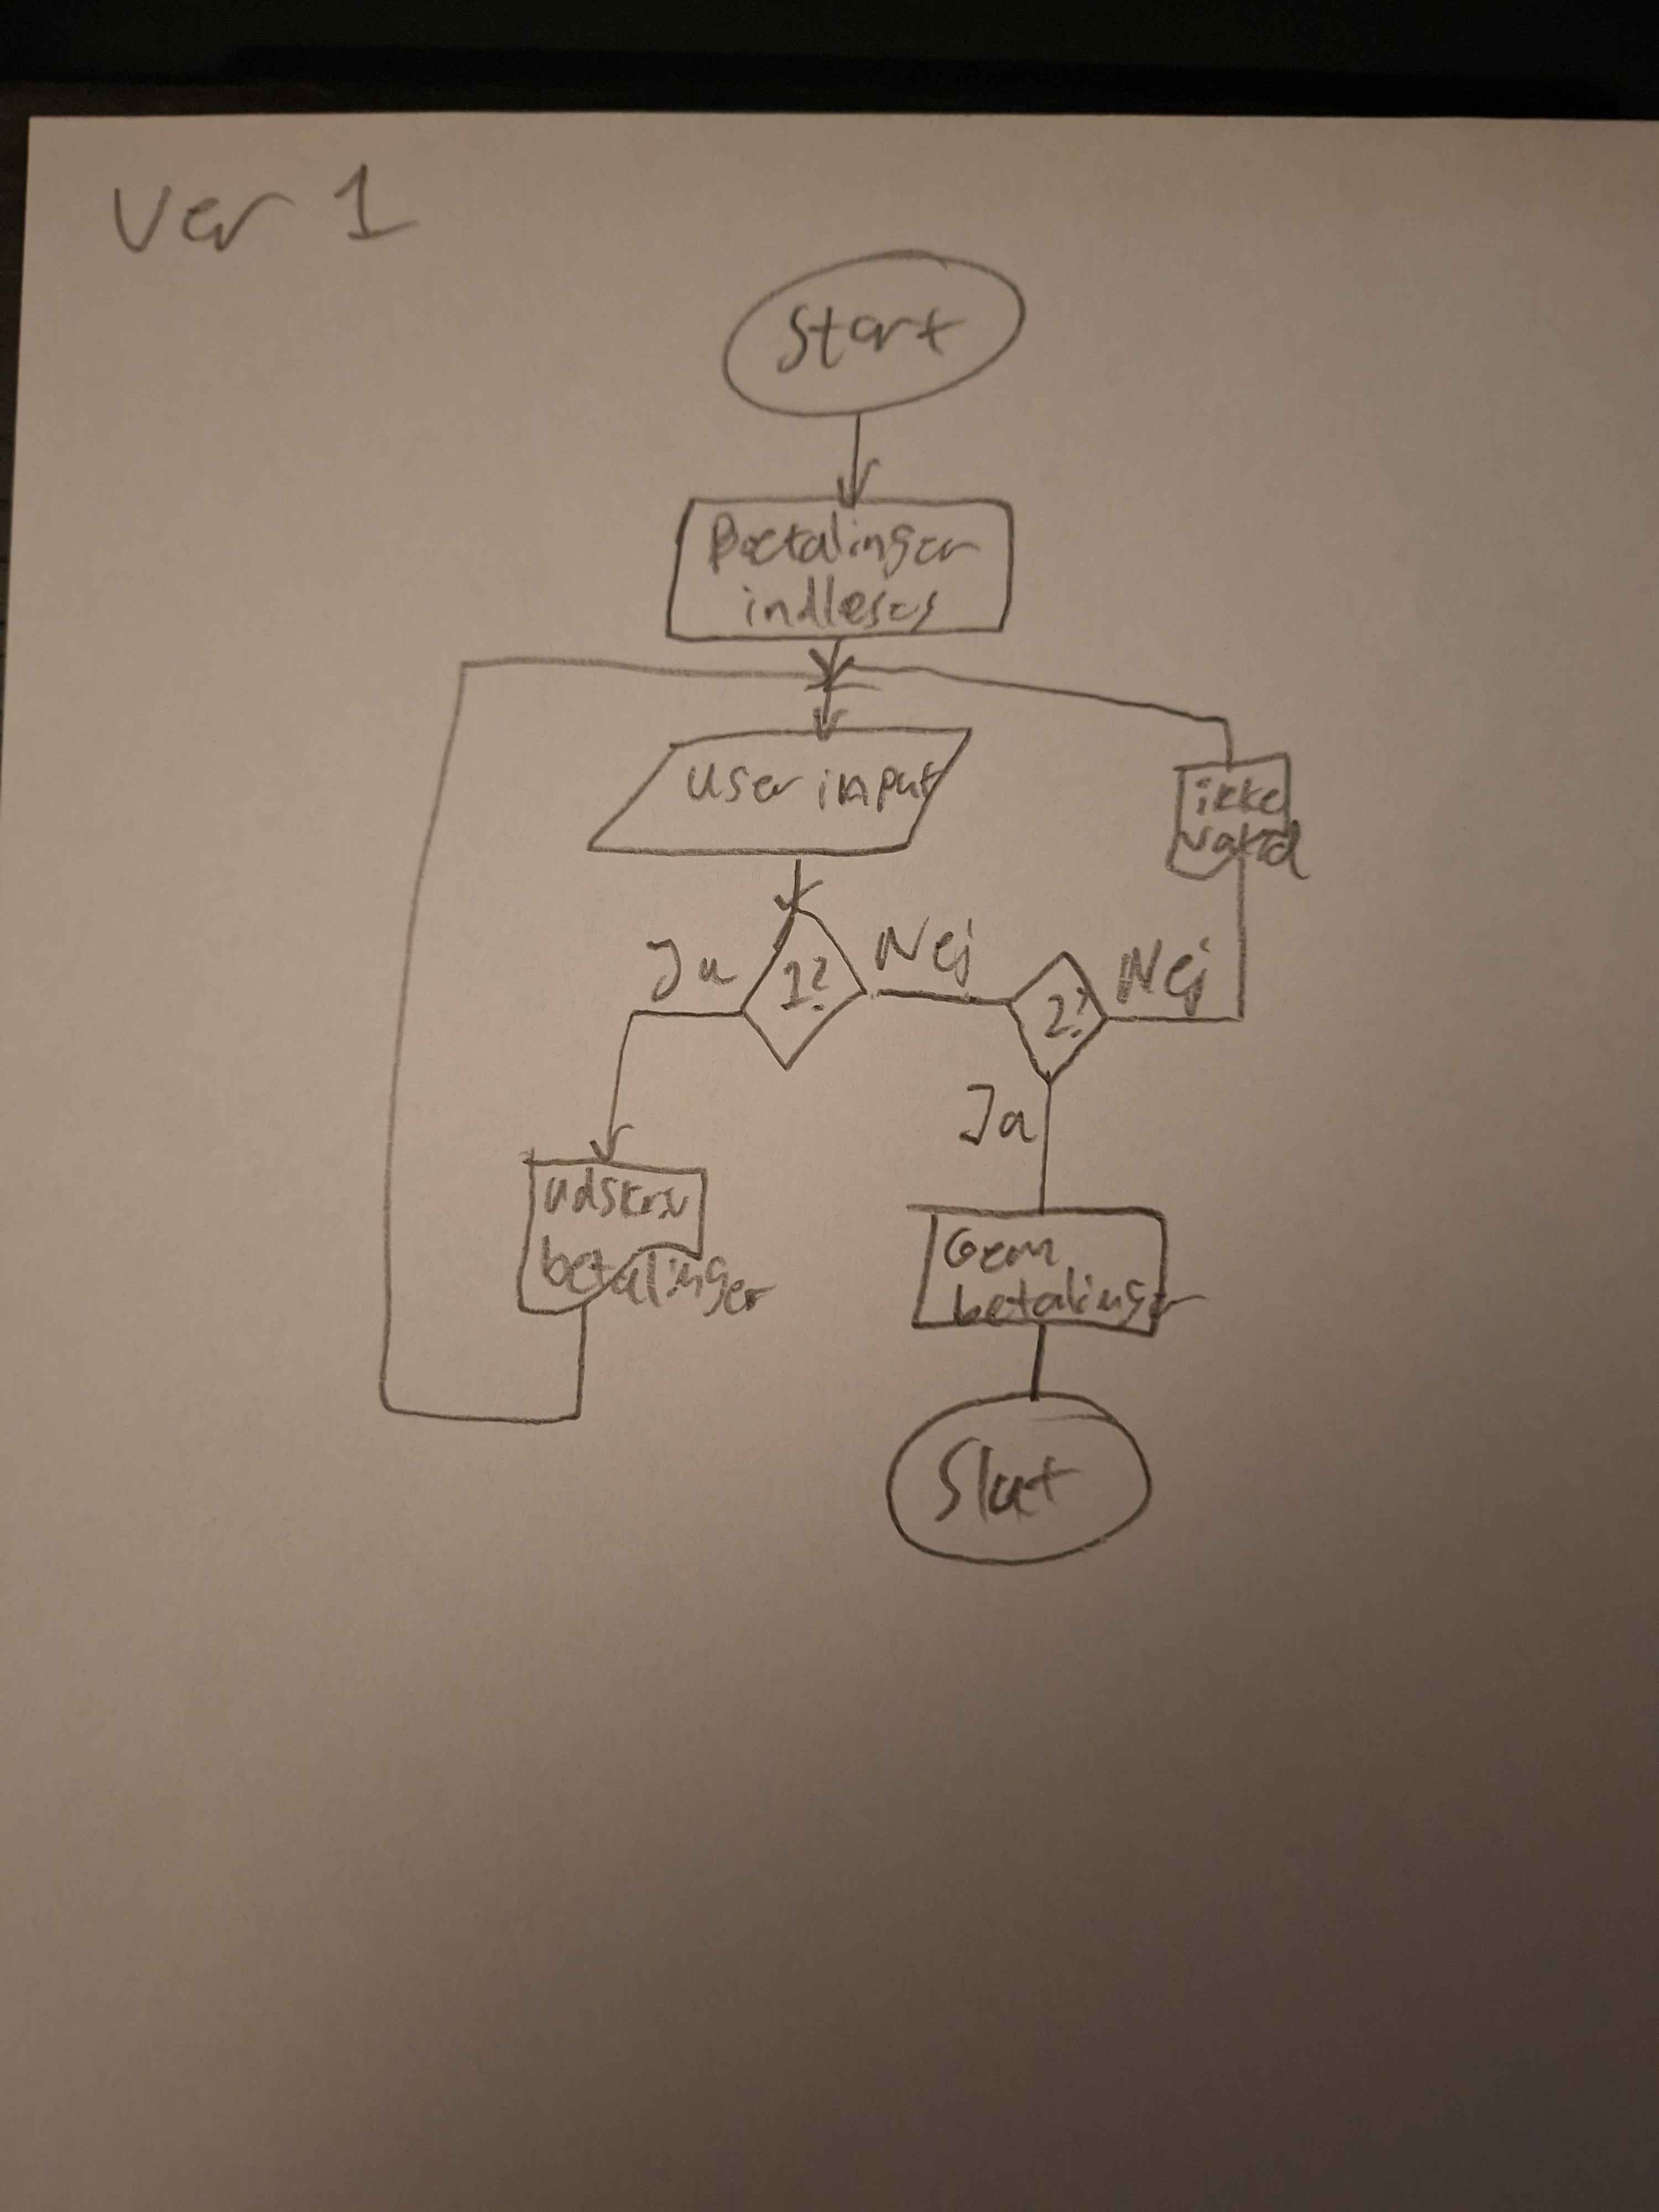 Ver 1
Start
Betalinger
indlæses
User input
ikke
valid
Ja
1?
Nej
2?
Nej
Ja
Udskriv
betalinger
Gem
betalinger
Slut